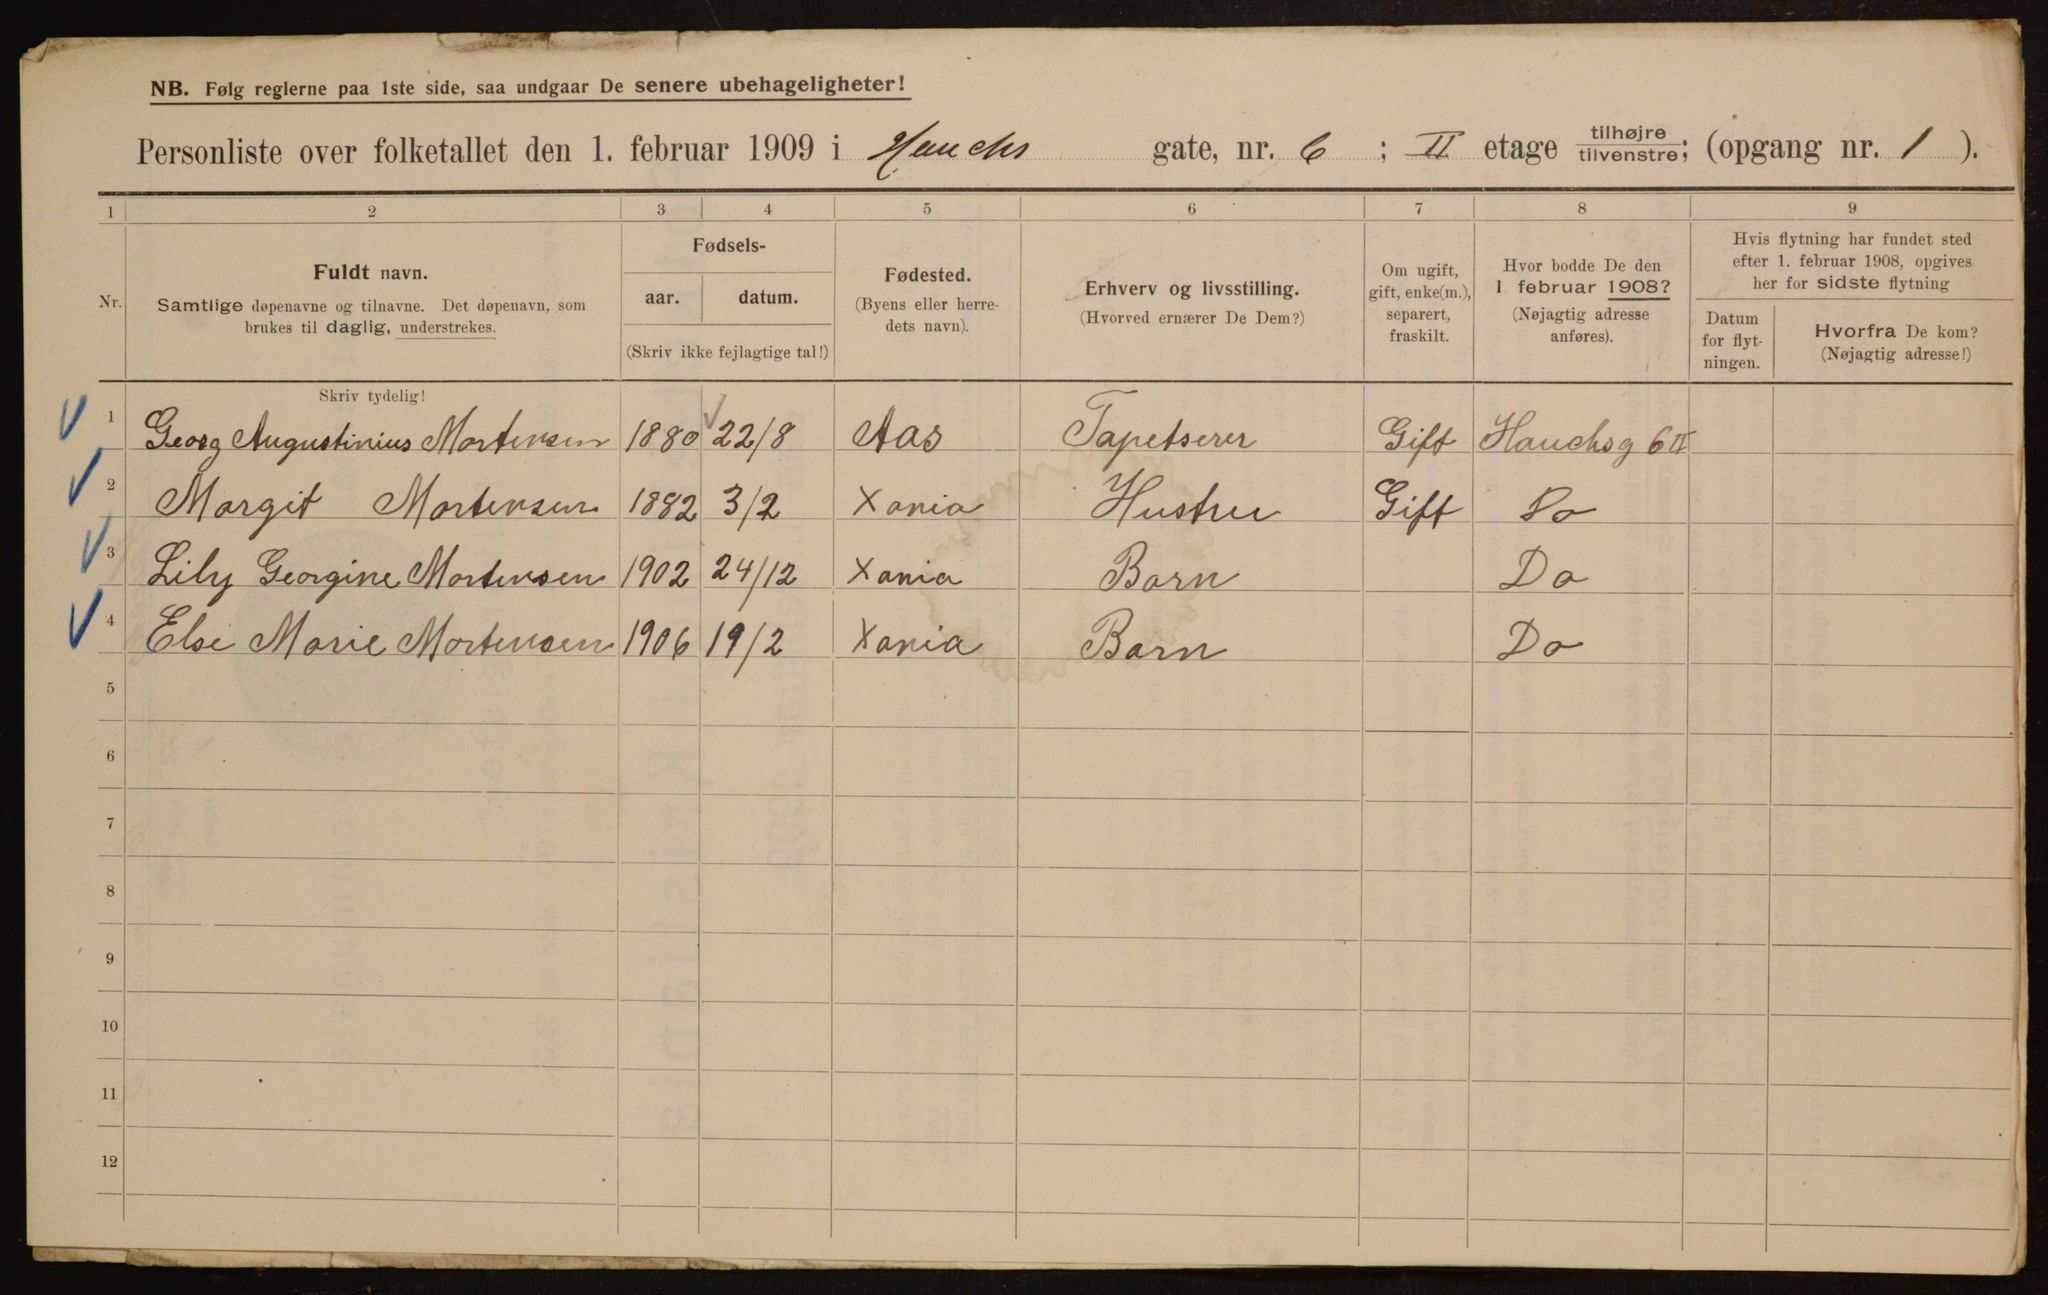 NB. Følg reglerne paa 1ste side, saa undgaar De senere ubehageligheter!
Personliste over folketallet den 1. februar 1909 i Hauchs gate, nr. 6 ; II etage tilhøjre/tilvenstre; (opgang nr. 1 ).
1 2 3 4 5 6 7 8 9
Nr.
Fuldt navn.
Samtlige døpenavne og tilnavne. Det døpenavn, som
brukes til daglig, understrekes.
Fødsels-
aar. datum.
(Skriv ikke fejlagtige tal!)
Fødested.
(Byens eller herre-
dets navn).
Erhverv og livsstilling.
(Hvorved ernærer De Dem?)
Om ugift,
gift, enke(m.),
separert,
fraskilt.
Hvor bodde De den
1. februar 1908?
(Nøjagtig adresse
anføres).
Hvis flytning har fundet sted
efter 1. februar 1908, opgives
her for sidste flytning
Datum
for flyt-
ningen.
Hvorfra De kom?
(Nøjagtig adresse!)
Skriv tydelig!
1 Georg Augustinius Mortensen 1880 22/8 Aas Tapetserer Gift Hauchsg 6 II
2 Margit Mortensen 1882 3/2 Xania Hustru Gift Do
3 Lily Georgine Mortensen 1902 24/12 Xania Barn Do
4 Else Marie Mortensen 1906 19/2 Xania Barn Do
5
6
7
8
9
10
11
12